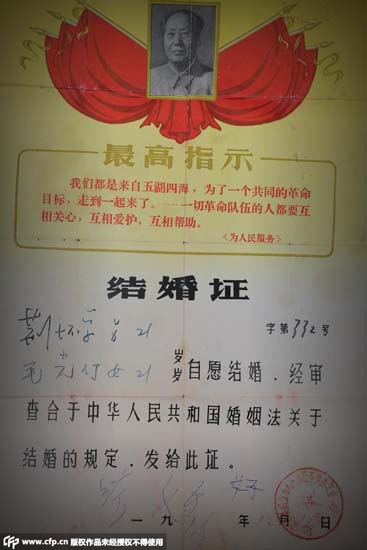 最高指示
我们都是来自五湖四海，为了一个共同的革命
目标，走到一起来了。……一切革命队伍的人都要互
相关心，互相爱护，互相帮助。
《为人民服务》
结婚证
字第332号
男 21 岁
女 21 岁
自愿结婚．经审
查合于中华人民共和国婚姻法关于
结婚的规定．发给此证。
一九 年 月 日
CFP www.cfp.cn 版权作品未经授权不得使用